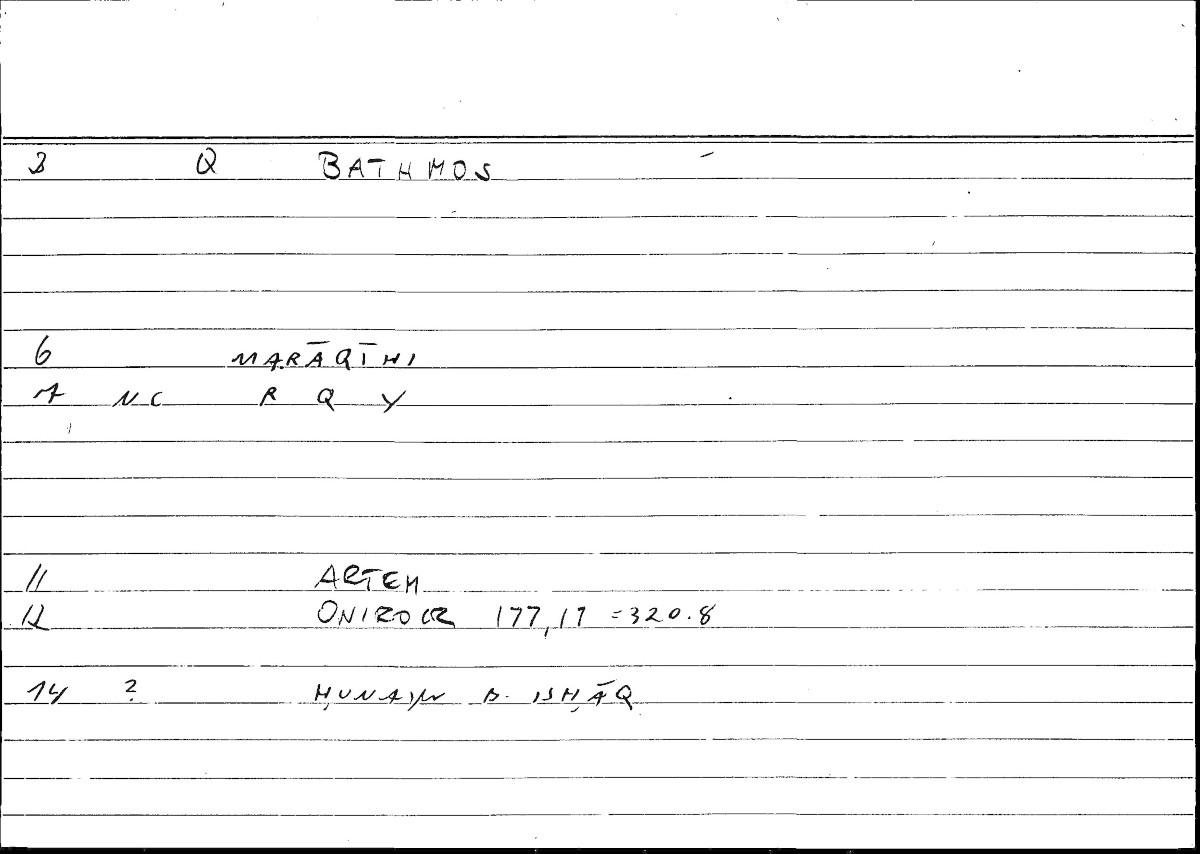 3 Q BATHMOS
6 MARĀQĪHI
7 NC R Q Y
11 ARTEM
12 ONIROCR 177,17 = 320.8
14 ? ḤUNAYN B. ISḤĀQ